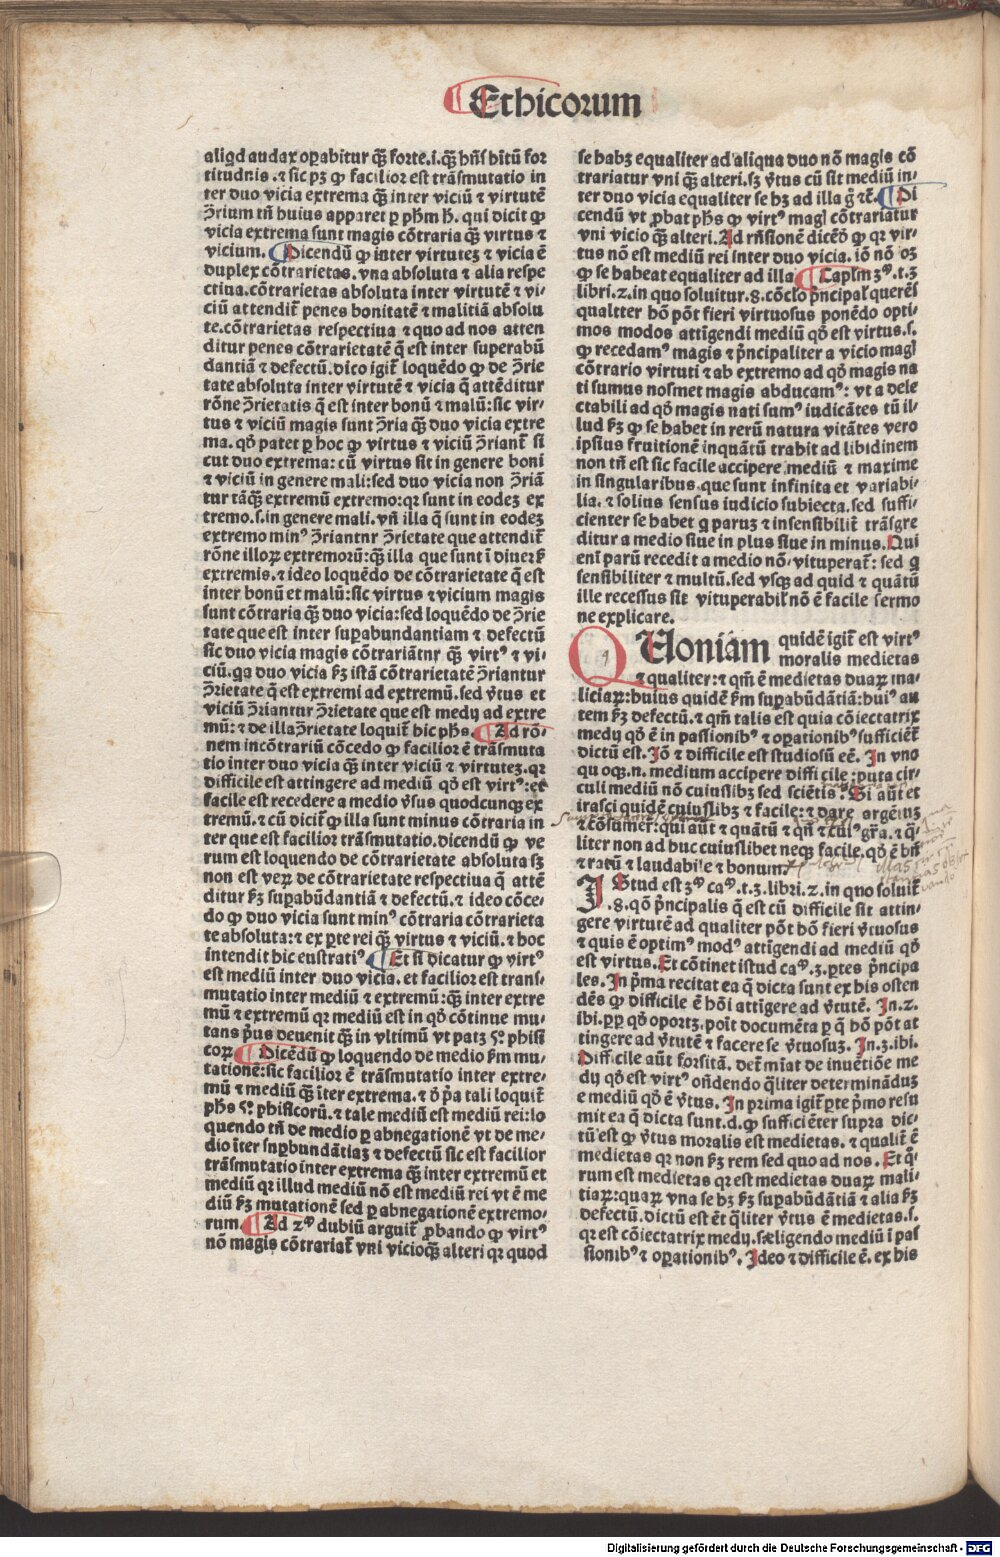 Ethicorum
aliqd audax oꝑabitur qꝫ̃ forte.i.qꝫ̃ hñs hĩtũ for
titudnis.⁊ sic pꝫ ꝙ facilior est trãsmutatio in
ter duo vicia extrema qꝫ̃ inter viciũ ⁊ virtutẽ
Ↄ̃rium tñ huius apparet ꝑ phm ħ. qui dicit ꝙ
vicia extrema sunt magis cõtraria qꝫ̃ virtus ⁊
vicium. Dicendũ ꝙ inter virtuteꝫ ⁊ vicia ẽ
duplex cõtrarietas. vna absoluta ⁊ alia respe
ctiua.cõtrarietas absoluta inter virtutẽ ⁊ vi⸗
ciũ attendit᷑ penes bonitatẽ ⁊ malitiã absolu
te.cõtrarietas respectiua ⁊ quo ad nos atten
ditur penes cõtrarietatẽ q̃ est inter superabũ
dantiã ⁊ defectũ.dico igit᷑ loquẽdo ꝙ de Ↄ̃rie
tate absoluta inter virtutẽ ⁊ vicia q̃ attẽditur
rõne Ↄ̃rietatis q̃ est inter bonũ ⁊ malũ:sic vir⸗
tus ⁊ viciũ magis sunt Ↄ̃ria qꝫ̃ duo vicia extre
ma. qd̃ patet ꝑ hoc ꝙ virtus ⁊ viciũ Ↄ̃riant᷑ si
cut duo extrema: cũ virtus sit in genere boni
⁊ viciũ in genere mali:sed duo vicia non Ↄ̃riã
tur tãqꝫ̃ extremũ extremo:qꝛ sunt in eodeꝫ ex
tremo.s.in genere mali. vñ illa q̃ sunt in eodeꝫ
extremo minꝰ Ↄ̃riantnr Ↄ̃rietate que attendit᷑
rõne illoꝝ extremorũ:qꝫ̃ illa que sunt ĩ diuerß
extremis.⁊ ideo loquẽdo de cõtrarietate q̃ est
inter bonũ et malũ:sic virtus ⁊ vicium magis
sunt cõtraria qꝫ̃ duo vicia:sed loquẽdo de Ↄ̃rie
tate que est inter suꝑabundantiam ⁊ defectũ
sic duo vicia magis cõtrariãtnr qꝫ̃ virtꝰ ⁊ vi⸗
ciũ.qa duo vicia ẞꝫ istã cõtrarietatẽ Ↄ̃riantur
Ↄ̃rietate q̃ est extremi ad extremũ.sed v̾tus et
viciũ Ↄ̃riantur Ↄ̃rietate que est medij ad extre
mũ: ⁊ de illaↃ̃rietate loquit᷑ hic phs. Ad rõ⸗
nem incõtrariũ cõcedo ꝙ facilior ẽ trãsmuta
tio inter duo vicia qꝫ̃ inter viciũ ⁊ virtuteꝫ.qꝛ
difficile est attingere ad mediũ qd̃ est virtꝰ:et
facile est recedere a medio v̾sus quodcunqꝫ ex
tremũ.⁊ cũ dicit᷑ ꝙ illa sunt minus cõtraria in
ter que est facilior trãsmutatio.dicendũ ꝙ ve
rum est loquendo de cõtrarietate absoluta sꝫ
non est veꝝ de cõtrarietate respectiua q̃ attẽ
ditur ẞꝫ suꝑabũdantiã ⁊ defectũ.⁊ ideo cõce⸗
do ꝙ duo vicia sunt minꝰ cõtraria cõtrarieta
te absoluta:⁊ ex ꝑte rei qꝫ̃ virtus ⁊ viciũ.⁊ hoc
intendit hic eustratiꝰ Et si dicatur ꝙ virtꝰ
est mediũ inter duo vicia.et facilior est trans⸗
mutatio inter mediũ ⁊ extremũ:qꝫ̃ inter extre
mũ ⁊ extremũ qꝛ mediũ est in qd̃ cõtinue mu⸗
tans pͥus deuenit qꝫ̃ in vltimũ vt patꝫ 5ꝰ phisi
coꝝ Dicẽdũ ꝙ loquendo de medio ẞm mu⸗
tationẽ:sic facilior ẽ trãsmutatio inter extre⸗
mũ ⁊ mediũ qꝫ̃ ĩter extrema.⁊ õ pͣ tali loquit᷑
phs 5ꝰ phisicorũ.⁊ tale mediũ est mediũ rei:lo
quendo tñ de medio ꝑ abnegationẽ vt de me⸗
dio ĩter snꝑbundãtiaꝫ ⁊ defectũ sic est facilior
trãsmutatio inter extrema qꝫ̃ inter extremũ et
mediũ qꝛ illud mediũ nõ est mediũ rei vt ẽ me
diũ ẞꝫ mutationẽ sed ꝑ abnegationẽ extremo⸗
rum. Ad 2ꝰ dubiũ arguit᷑ ꝓbando ꝙ virtꝰ
nõ magis cõtrariat᷑ vni vicioqꝫ̃ alteri qꝛ quod
se habꝫ equaliter ad aliqua duo nõ magis cõ
trariatur vni qꝫ̃ alteri.sꝫ v̾tus cũ sit mediũ in⸗
ter duo vicia equaliter se hꝫ ad illa g̃ ⁊c̃. Di
cendũ vt ꝓbat phs ꝙ virtꝰ magl cõtrariatur
vni vicio qꝫ̃ alteri.Ad rñsionẽ dicẽd̾ ꝙ qꝛ vir⸗
tus nõ est mediũ rei inter duo vicia. iõ nõ oꝫ
ꝙ se habeat equaliter ad illa Caplm 3ꝰ.t.3
libri.2.in quo soluitur.8.cõclo pͥncipal᷑ querẽs
qualtter hõ põt fieri virtuosus ponẽdo opti⸗
mos modos attĩgendi mediũ qd̃ est virtus.s.
ꝙ recedamꝰ magis ⁊ pͥncipaliter a vicio magl
cõtrario virtuti ⁊ ab extremo ad qd̃ magis na
ti sumus nosmet magis abducamꝰ: vt a dele
ctabili ad qd̃ magis nati sumꝰ iudicãtes tũ il⸗
lud ẞꝫ ꝙ se habet in rerũ natura vitãtes vero
ipsius fruitionẽ inquãtũ trahit ad libidinem
non tñ est sic facile accipere mediũ ⁊ maxime
in singularibus.que sunt infinita et variabi⸗
lia.⁊ solius sensus iudicio subiecta.sed suffi⸗
cienter se habet q paruꝫ ⁊ insensibilit᷑ trãsgre
ditur a medio siue in plus siue in minus.Qui
enĩ parũ recedit a medio nõ vituperat᷑: sed q
sensibiliter ⁊ multũ.sed vsqꝫ ad quid ⁊ quãtũ
ille recessus sit vituperabil᷑ nõ ẽ facile sermo
ne explicare.
QUoniam quidẽ igit᷑ est virtꝰ
moralis medietas
⁊ qualiter:⁊ qm̃ ẽ medietas duaꝝ ma⸗
liciaꝝ:huius quidẽ ẞm suꝑabũdãtiã:huiꝰ au
tem ẞꝫ defectũ.⁊ qm̃ talis est quia cõiectatrix
medij qd̃ ẽ in passionibꝰ ⁊ oꝑationibꝰ sufficiẽt᷑
dictũ est. Jõ ⁊ difficile est studiosũ eẽ. In vno
qu oqꝫ.n. medium accipere diffi cile:puta cir⸗
culi mediũ nõ cuiuslibꝫ sed sciẽtis. Si aũt et
irasci quidẽ cuiuslibꝫ ⁊ facile:⁊ dare argẽtũ
⁊ cõsumer:qui aũt ⁊ quãtũ ⁊ qñ ⁊ cuiꝰ gr̃a.⁊ q̃⸗
liter non ad huc cuiuslibet neqꝫ facile.qd̃ ẽ bñ
⁊ ratũ ⁊ laudabile ⁊ bonum
IStud est 3ꝰ caꝰ.t.3.libri.2.in quo soluit᷑
.8.qõ pͥncipalis q̃ est cũ difficile sit attin⸗
gere virtutẽ ad qualiter põt hõ fieri v̾tuosus
⁊ quis ẽ optimꝰ modꝰ attĩgendi ad mediũ qd̃
est virtus.Et cõtinet istud caꝰ.3.ꝑtes pͥncipa
les.In pͥma recitat ea q̃ dicta sunt ex his osten
dẽs ꝙ difficile ẽ hõi attĩgere ad v̾tutẽ. In.2.
ibi.ꝓpꝑ qd̃ oportꝫ.poĩt documẽta ꝑ q̃ hõ põt at
tingere ad v̾tutẽ ⁊ facere se v̾tuosuꝫ. In.3.ibi.
Difficile aũt forsitã. det᷑mĩat de inuẽtiõe me
dij qd̃ est virtꝰ oñdendo q̃liter determinãduꝫ
e mediũ qd̃ ẽ v̾tus. In prima igit᷑ ꝑte pͥmo resu
mit ea q̃ dicta sunt.d.ꝙ sufficiẽter supra dic⸗
tũ est ꝙ v̾tus moralis est medietas.⁊ qualit᷑ ẽ
medietas qꝛ non ẞꝫ rem sed quo ad nos. Et q̃⸗
rum est medietas qꝛ est medietas duaꝝ mali⸗
tiaꝝ:quaꝝ vna se hꝫ ẞꝫ suꝑabũdãtiã ⁊ alia ẞꝫ
defectũ.dictũ est ẽt q̃liter v̾tus ẽ medietas.s.
qꝛ est cõiectatrix medij.sæligendo mediũ ĩ pas
sionibꝰ ⁊ oꝑationibꝰ. Ideo ⁊ difficile ẽ. ex his
Digitalisierung gefördert durch die Deutsche Forschungsgemeinschaft - DFG